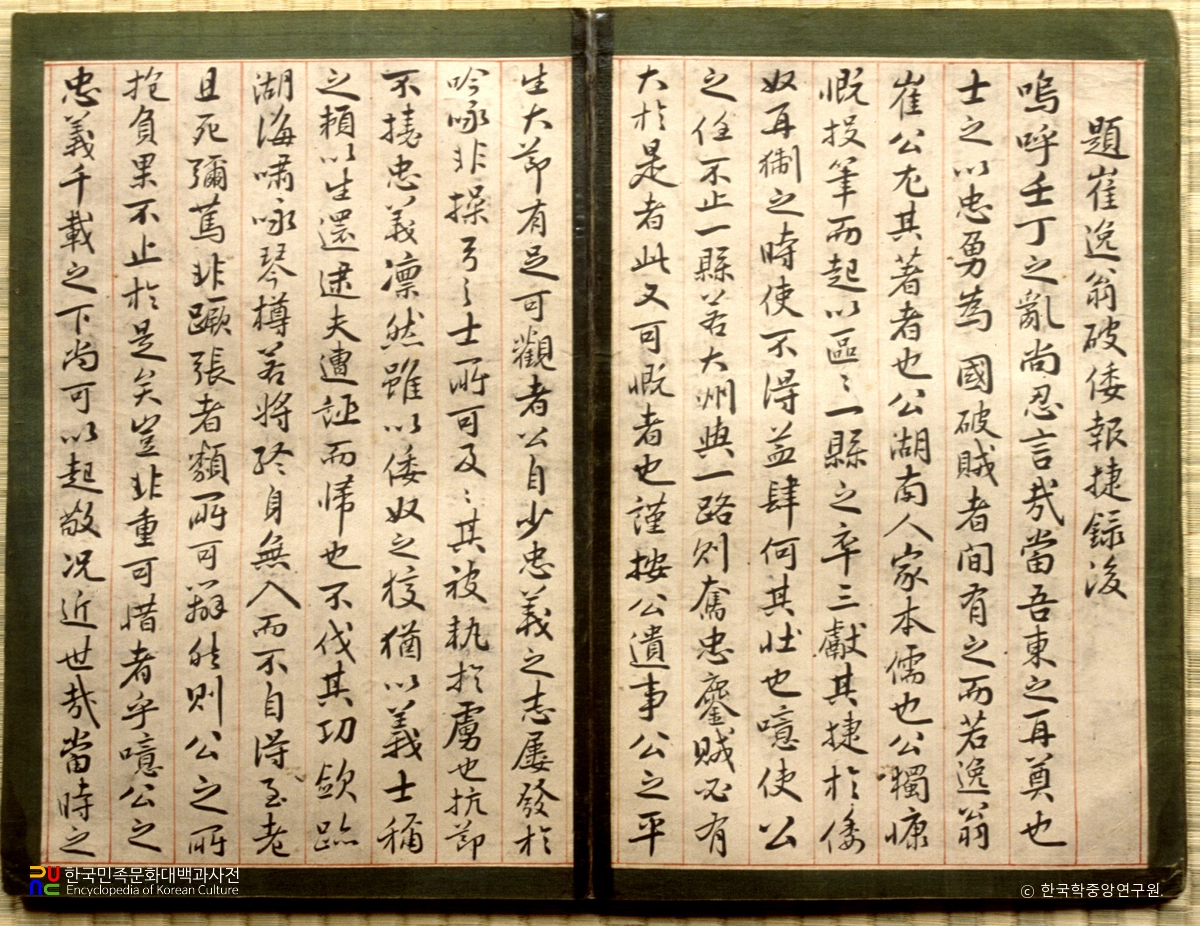 題崔逸翁破倭報捷錄後
嗚呼壬丁之亂尚忍言哉當吾東之再奠也
士之以忠勇爲 國破賊者間有之而若逸翁
崔公尤其著者也公湖南人家本儒也公獨慷
慨投筆而起以區〻一縣之卒三獻其捷於倭
奴再猘之時使不得益肆何其壯也噫使公
之任不止一縣若大州與一路則奮忠鏖賊必有
大於是者此又可慨者也謹按公遺事公之平
生大節有足可觀者公自少忠義之志屢發於
吟咏非操弓之士所可及〻其被執於虜也抗節
不撓忠義凜然雖以倭奴之狡猶以義士稱
之賴以生還逮夫遭誣而歸也不伐其功斂跡
湖海嘯咏琴樽若將終身無入而不自得至老
且死彌篤非蹶張者類所可辦然則公之所
抱負果不止於是矣豈非重可惜者乎噫公之
忠義千載之下尚可以起敬况近世哉當時之
한국민족문화대백과사전
Encyclopedia of Korean Culture
© 한국학중앙연구원.